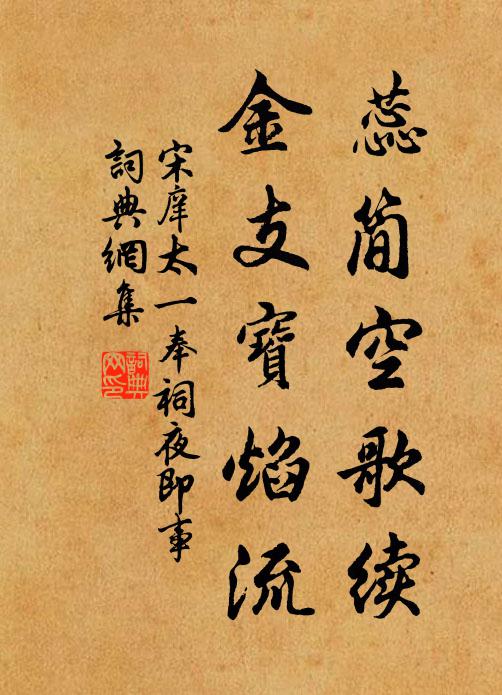 蕊简空歌续
金支寶焰流
宋庠太一奉祠夜即事
詞典網集
詞典网印